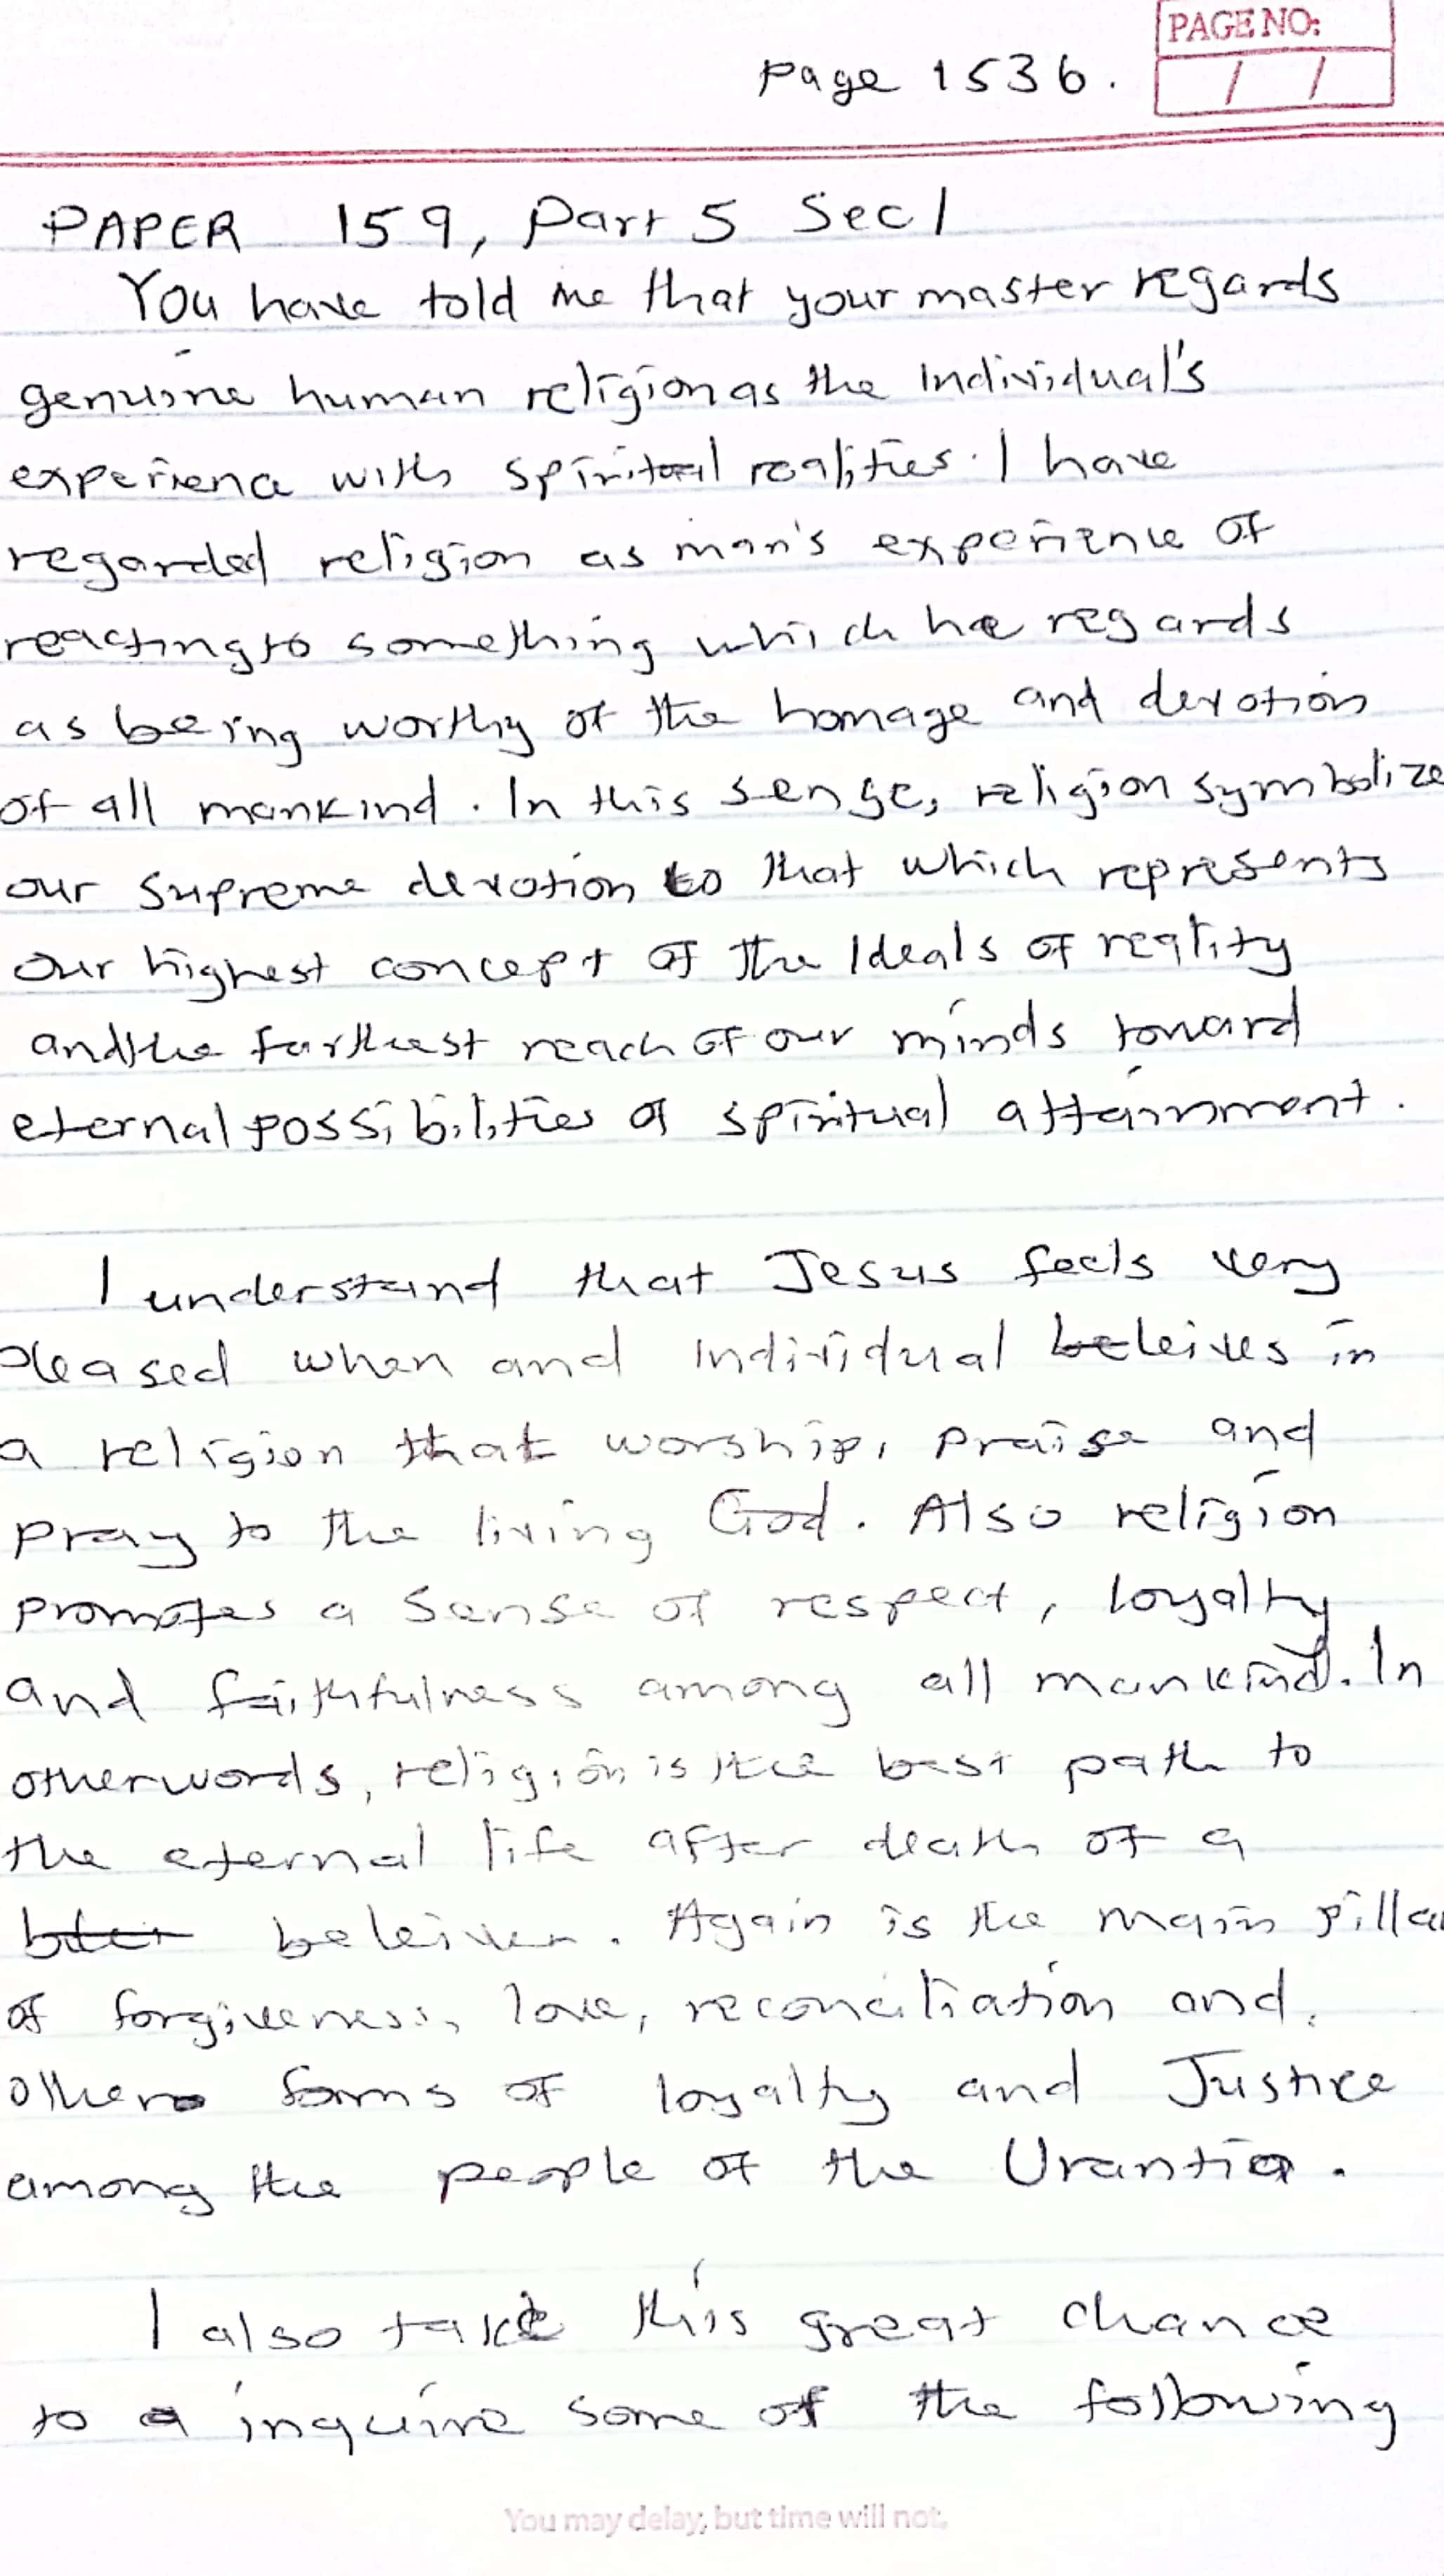 PAGE NO:
Page 1536.
/ /
PAPER 159, Part 5 Sec 1
You have told me that your master regards
genuine human religion as the Individual's
experience with spiritual realities. I have
regarded religion as man's experience of
reacting to something which he regards
as being worthy of the homage and devotion
of all mankind. In this sense, religion symbolize
our supreme devotion to that which represents
our highest concept of the Ideals of reality
and the farthest reach of our minds toward
eternal possibilities of spiritual attainment.
I understand that Jesus feels very
pleased when and Individual beleives in
a religion that worship, praise and
pray to the living God. Also religion
promotes a sense of respect, loyalty
and faithfulness among all mankind. In
otherwords, religion is the best path to
the eternal life after death of a
beleiver. Again is the main pillar
of forgiveness, love, reconciliation and,
other forms of loyalty and Justice
among the people of the Urantia.
I also take this great chance
to inquire some of the following
You may delay, but time will not.